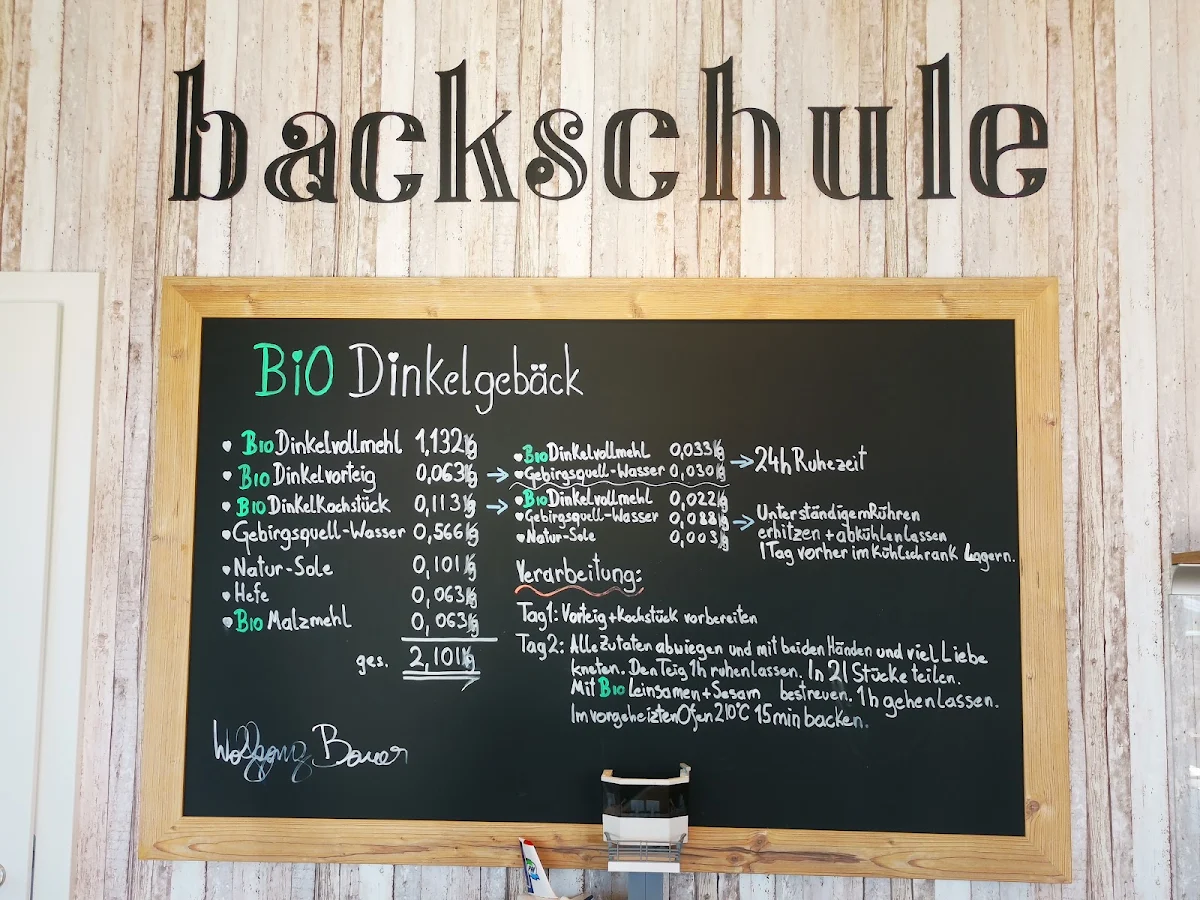 backschule
BiO Dinkelgebäck
BIO Dinkelvollmehl 1,132kg
BIO Dinkelvorteig 0,063kg →
BIO DinkelKochstück 0,113kg →
Gebirgsquell-Wasser 0,566kg
Natur-Sole 0,101kg
Hefe 0,063kg
BIO Malzmehl 0,063kg
ges. 2,101kg
BIO Dinkelvollmehl 0,033kg
Gebirgsquell-Wasser 0,030kg
→ 24h Ruhezeit
BIO Dinkelvollmehl 0,022kg
Gebirgsquell-Wasser 0,088kg
Natur-Sole 0,003kg
→ Unter ständigem Rühren
erhitzen + abkühlen lassen
1 Tag vorher im Kühlschrank lagern.
Verarbeitung:
Tag1: Vorteig + Kochstück vorbereiten
Tag2: Alle Zutaten abwiegen und mit beiden Händen und viel Liebe
kneten. Den Teig 1h ruhen lassen. In 21 Stücke teilen.
Mit BIO Leinsamen + Sesam bestreuen. 1h gehen lassen.
Im vorgeheizten Ofen 210°C 15 min backen.
Wolfgang Bauer